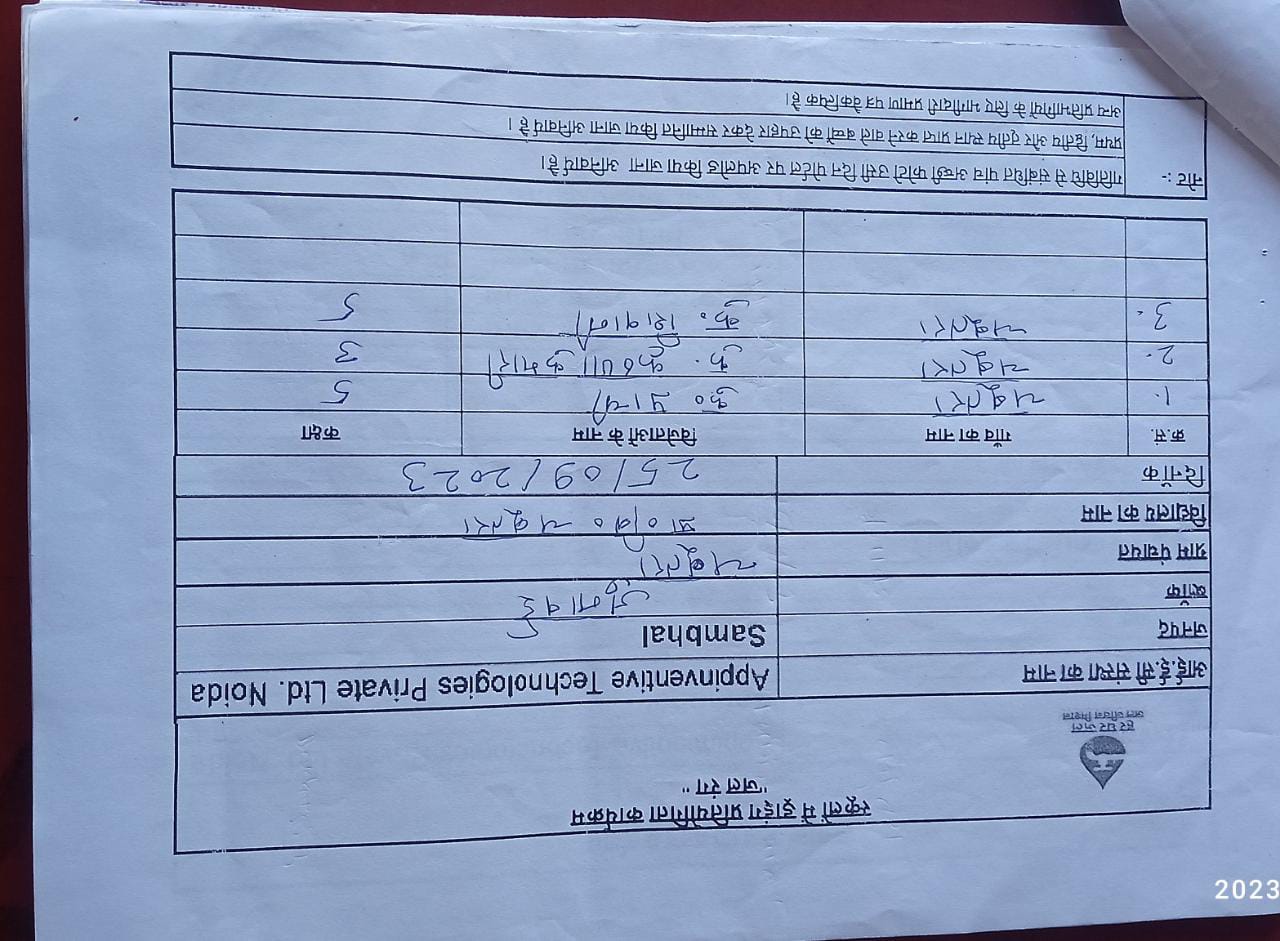 स्कूलों में ड्राइंग प्रतियोगिता कार्यक्रम
"जल रंग"
हर घर जल
जल जीवन मिशन
आई.ई.सी संस्था का नाम Appinventive Technologies Private Ltd. Noida
जनपद Sambhal
ब्लॉक जुनावई
ग्राम पंचायत चबूतरा
विद्यालय का नाम प्रा० वि० चबूतरा
दिनाँक 25/09/2023
क्र.सं. गाँव का नाम विजेताओं के नाम कक्षा
1. चबूतरा कु० प्राची 5
2. चबूतरा कु. कृष्णा कुमारी 3
3. चबूतरा कु. शिवानी 5
नोट :- गतिविधि से संबंधित पांच अच्छी फोटो उसी दिन पोर्टल पर अपलोड किया जाना अनिवार्य है।
प्रथम, द्वितीय और तृतीय स्थान प्राप्त करने वाले बच्चों को उपहार देकर सम्मानित किया जाना अनिवार्य है।
अन्य प्रतिभागियों के लिए भागीदारी प्रमाण पत्र वैकल्पिक है।
2023